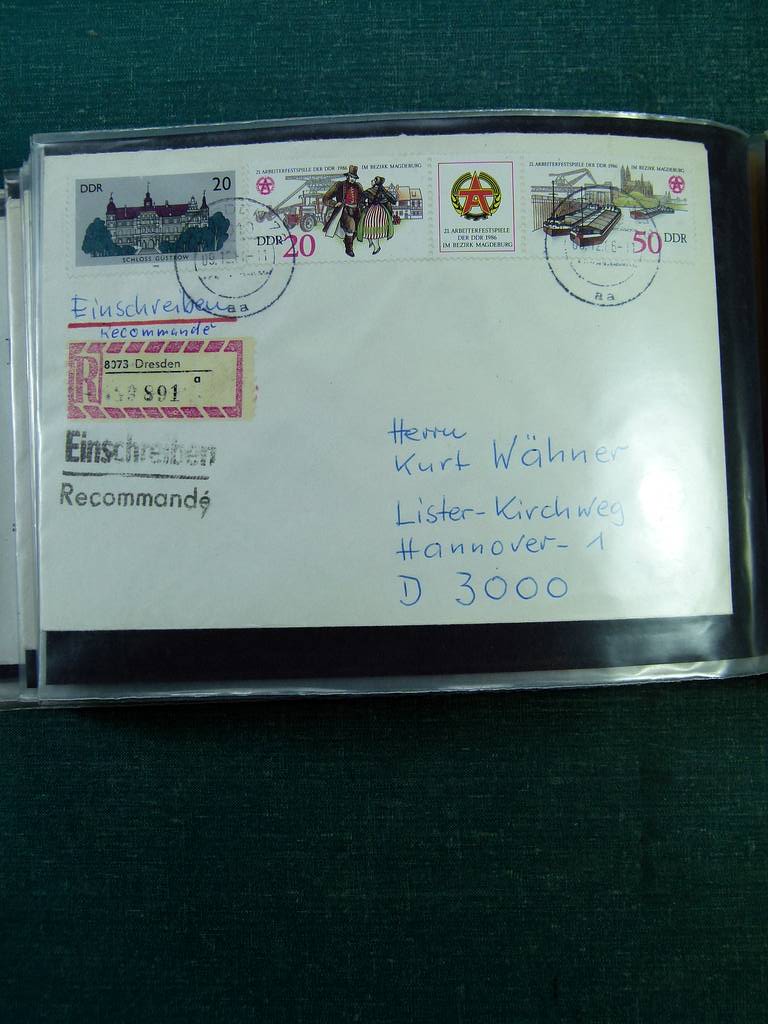 DDR 20
SCHLOSS GÜSTROW
21. ARBEITERFESTSPIELE DER DDR 1986 IM BEZIRK MAGDEBURG
DDR 20
A
21. ARBEITERFESTSPIELE
DER DDR 1986
IM BEZIRK MAGDEBURG
21. ARBEITERFESTSPIELE DER DDR 1986 IM BEZIRK MAGDEBURG
50 DDR
aa
aa
Einschreiben
Recommandé
R
8073 Dresden
a
891
Einschreiben
Recommandé
Herrn
Kurt Wähner
Lister-Kirchweg
Hannover-1
D 3000